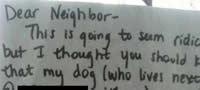 Dear Neighbor-
This is going to seem ridic
but I thought you should k
that my dog (who lives next